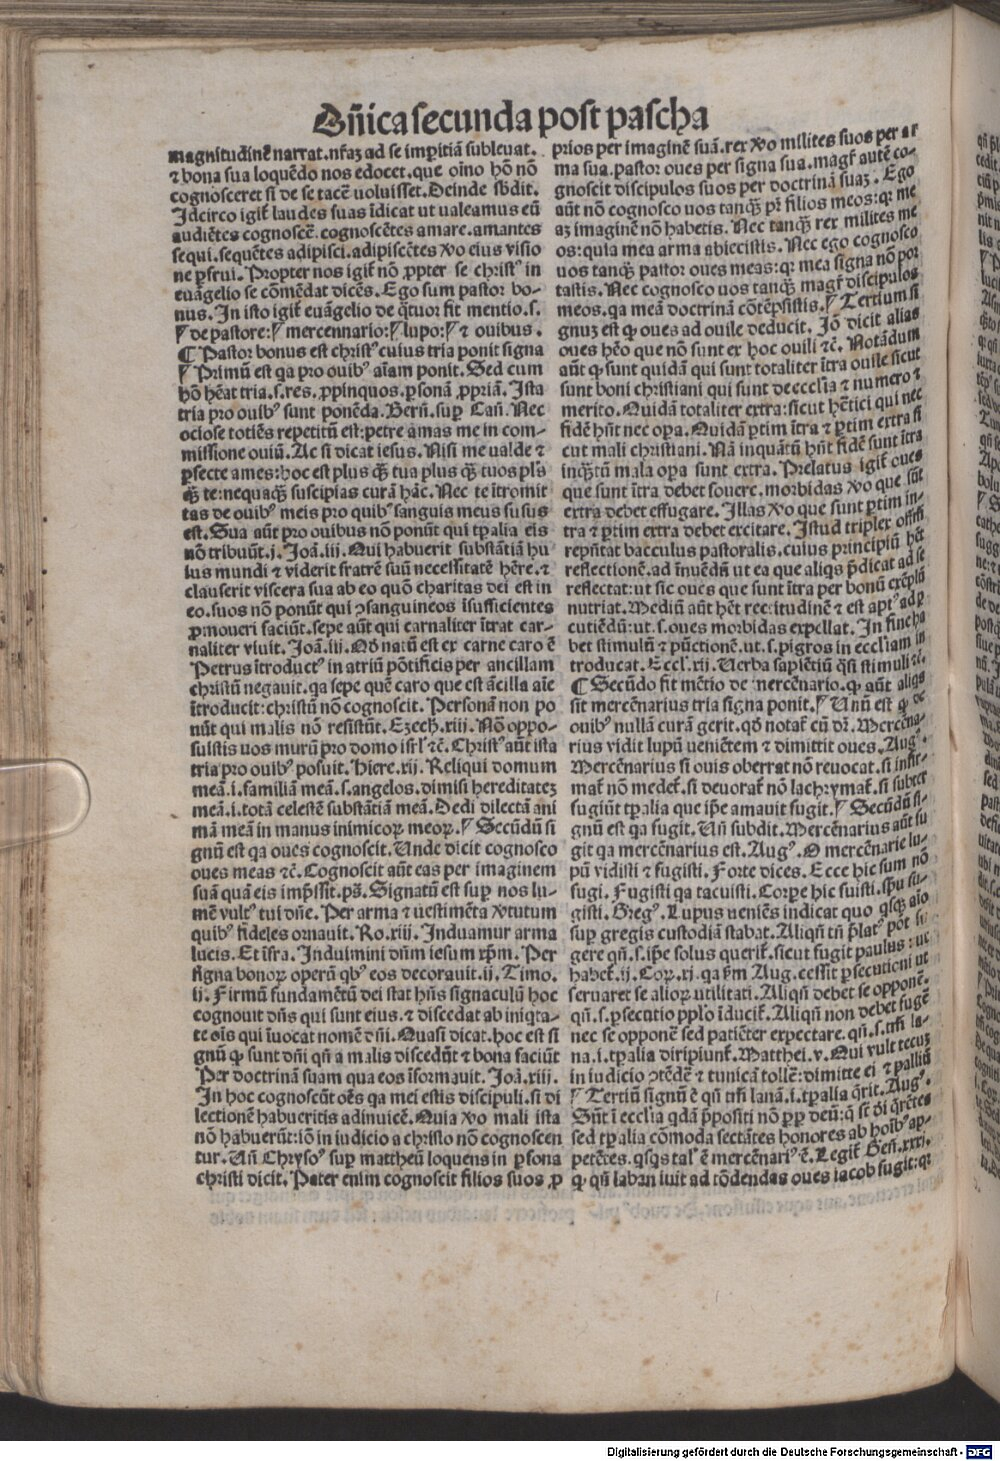 Dn̄ica secunda post pascha
magnitudinē narrat. nr̄aʒ ad se imꝑitiā subleuat.
⁊ bona sua loquēdo nos edocet. que oīno hō nō
cognosceret si de se tacē uoluisset. Deinde sb̄dit.
Idcirco igit̄ laudes suas īdicat ut ualeamus eū
audiētes cognoscē. cognoscētes amare. amantes
sequi. sequētes adipisci. adipiscētes ꝟo eius visio
ne ꝑfrui. Propter nos igit̄ nō ꝓpter se christꝰ in
euāgelio se cōmēdat dicēs. Ego sum pastor bo-
nus. In isto igit̄ euāgelio de q̄tuor fit mentio. s.
¶ de pastore: ¶ mercennario: ¶ lupo: ¶ ⁊ ouibus.
¶ Pastor bonus est christꝰ cuius tria ponit signa
¶ Primū est qa pro ouibꝰ aīam ponit. Sed cum
hō hēat tria. s. res. ꝓpinquos. ꝑsonā ꝓpriā. Ista
tria pro ouibꝰ sunt ponēda. Berñ. suꝑ Cañ. Nec
ociose totiēs repetitū est: petre amas me in com-
missione ouiū. Ac si dicat iesus. Nisi me ualde ⁊
ꝑfecte ames: hoc est plus q̄ʒ tua plus q̄ʒ tuos plꝰ
q̄ʒ te: nequaq̄ʒ suscipias curā hāc. Nec te ītromit
tas de ouibꝰ meis pro quibꝰ sanguis meus fusus
est. Sua aūt pro ouibus nō ponūt qui tꝑalia eis
nō tribuūt. j. Joā. iij. Qui habuerit substātiā hu
ius mundi ⁊ viderit fratrē suū necessitatē hēre. ⁊
clauserit viscera sua ab eo quō charitas dei est in
eo. suos nō ponūt qui ꝯsanguineos īsufficientes
ꝓmoueri faciūt. sepe aūt qui carnaliter ītrat car-
naliter viuit. Joā. iij. Qd̄ natū est ex carne caro ē
Petrus ītroductꝰ in atriū pōtificis per ancillam
christū negauit. qa sepe quē caro que est ācilla aīe
ītroducit: christū nō cognoscit. Personā non po
nūt qui malis nō resistūt. Ezech. xiij. Nō oppo-
suistis uos murū pro domo isrl̄ ⁊c̄. Christꝰ aūt ista
tria pro ouibꝰ posuit. Hiere. xij. Reliqui domum
meā. i. familiā meā. s. angelos. dimisi hereditateʒ
meā. i. totā celestē substātiā meā. Dedi dilectā ani
mā meā in manus inimicoꝝ meoꝝ. ¶ Secūdū si
gnū est qa oues cognoscit. Unde dicit cognosco
oues meas ⁊c̄. Cognoscit aūt eas per imaginem
suā quā eis imp̄ssit. ps̄. Signatū est suꝑ nos lu-
mē vultꝰ tui dn̄e. Per arma ⁊ uestimēta ꝟtutum
quibꝰ fideles ornauit. Ro. xiij. Induamur arma
lucis. Et īfra. Induimini dn̄m iesum xp̄m. Per
signa bonoꝝ operū qbꝰ eos decorauit. ii. Timo.
ij. Firmū fundamētū dei stat hn̄s signaculū hoc
cognouit dn̄s qui sunt eius. ⁊ discedat ab iniqta-
te oīs qui īuocat nomē dn̄i. Quasi dicat. hoc est si
gnū ꝙ sunt dn̄i qn̄ a malis discedūt ⁊ bona faciūt
Per doctrinā suam qua eos īformauit. Joā. xiij.
In hoc cognoscūt oēs qa mei estis discipuli. si di
lectionē habueritis adinuicē. Quia ꝟo mali ista
nō habuerūt: iō in iudicio a christo nō cognoscen
tur. Uñ Chrysoꝰ suꝑ mattheū loquens in ꝑsona
christi dicit. Pater enim cognoscit filios suos ꝓ
prios per imaginē suā. rex ꝟo milites suos per ar
ma sua. pastor oues per signa sua. magr̄ autē co-
gnoscit discipulos suos per doctrinā suaʒ. Ego
aūt nō cognosco uos tanq̄ʒ pr̄ filios meos: qꝛ me
aʒ imaginē nō habetis. Nec tanq̄ʒ rex milites me
os: quia mea arma abiecistis. Nec ego cognosco
uos tanq̄ʒ pastor oues meas: qꝛ mea signa nō por
tastis. Nec cognosco uos tanq̄ʒ magr̄ discipulos
meos. qa meā doctrinā cōtēpsistis. ¶ Tertium si
gnuʒ est ꝙ oues ad ouile deducit. Jō dicit alias
oues hēo que nō sunt ex hoc ouili ⁊c̄. Notādum
aūt ꝙ sunt quidā qui sunt totaliter ītra ouile sicut
sunt boni christiani qui sunt de ecclīa ⁊ numero ⁊
merito. Quidā totaliter extra: sicut hētici qui nec
fidē hn̄t nec oꝑa. Quidā ꝑtim ītra ⁊ ꝑtim extra si
cut mali christiani. Nā inquātū hn̄t fidē sunt ītra
inq̄tū mala oꝑa sunt extra. Prelatus igit̄ oues
que sunt ītra debet fouere. morbidas ꝟo que sūt
extra debet effugare. Illas ꝟo que sunt ꝑtim in-
tra ⁊ ꝑtim extra debet excitare. Istud triplex offm̄
rep̄ntat bacculus pastoralis. cuius principiū hēt
reflectionē. ad īnuēdū ut ea que aliqs p̄dicat ad se
reflectat: ut sic oues que sunt ītra per bonū exēplū
nutriat. Mediū aūt hēt rectitudinē ⁊ est aptꝰ ad ꝑ
cutiēdū: ut. s. oues morbidas expellat. In fine ha
bet stimulū ⁊ pūctionē. ut. s. pigros in ecclīam in
troducat. Eccl̄. xij. Uerba sapiētiū q̄si stimuli ⁊c̄.
¶ Secūdo fit mētio de mercēnario. ꝙ aūt aliqs
sit mercēnarius tria signa ponit. ¶ Unū est ꝙ de
ouibꝰ nullā curā gerit. qd̄ notat̄ cū dr̄. Mercēna-
rius vidit lupū ueniētem ⁊ dimittit oues. Augꝰ.
Mercēnarius si ouis oberrat nō reuocat. si infir-
mat̄ nō medet̄. si deuorat̄ nō lachrymat̄. si subter
fugiūt tꝑalia que ip̄e amauit fugit. ¶ Secūdū si-
gnū est qa fugit. Uñ subdit. Mercēnarius aūt fu
git qa mercēnarius est. Augꝰ. O mercēnarie lu-
pū vidisti ⁊ fugisti. Forte dices. Ecce hic sum nō
fugi. Fugisti qa tacuisti. Corꝑe hic fuisti. sp̄u fu-
gisti. Gregꝰ. Lupus ueniēs indicat quo qsq̄ʒ aīo
suꝑ gregis custodiā stabat. Aliqñ tn̄ p̄latꝰ pōt fu
gere qñ. s. ip̄e solus querit̄. sicut fugit paulus: ut
habet̄. ij. Coꝝ. xj. qa ẜm Aug. cessit ꝑsecutioni ut
seruaret se alioꝝ utilitati. Aliqñ debet se opponē.
qñ. s. ꝑsecutio pplo īducit̄. Aliqñ non debet fugē
nec se opponē sed patiēter expectare. qñ. s. trn̄ la-
na. i. tꝑalia diripiunt̄. Matthei. v. Qui vult tecuʒ
in iudicio ꝯtēdē ⁊ tunicā tollē: dimitte ei ⁊ palliū
¶ Tertiū signū ē qñ trn̄ lanā. i. tꝑalia q̄rit. Augꝰ.
Sūt i ecclīa qdā p̄positi nō ꝓp deū: q̄ st̄ di q̄rētes
sed tꝑalia cōmoda sectātes honores ab hoībꝰ ap-
petētes. qsqs talꝰ ē mercēnariꝰ ē. Legit̄ Geñ. xxxi.
ꝙ qñ laban iuit ad tōdendas oues iacob fugit: qꝛ
Digitalisierung gefördert durch die Deutsche Forschungsgemeinschaft - DFG